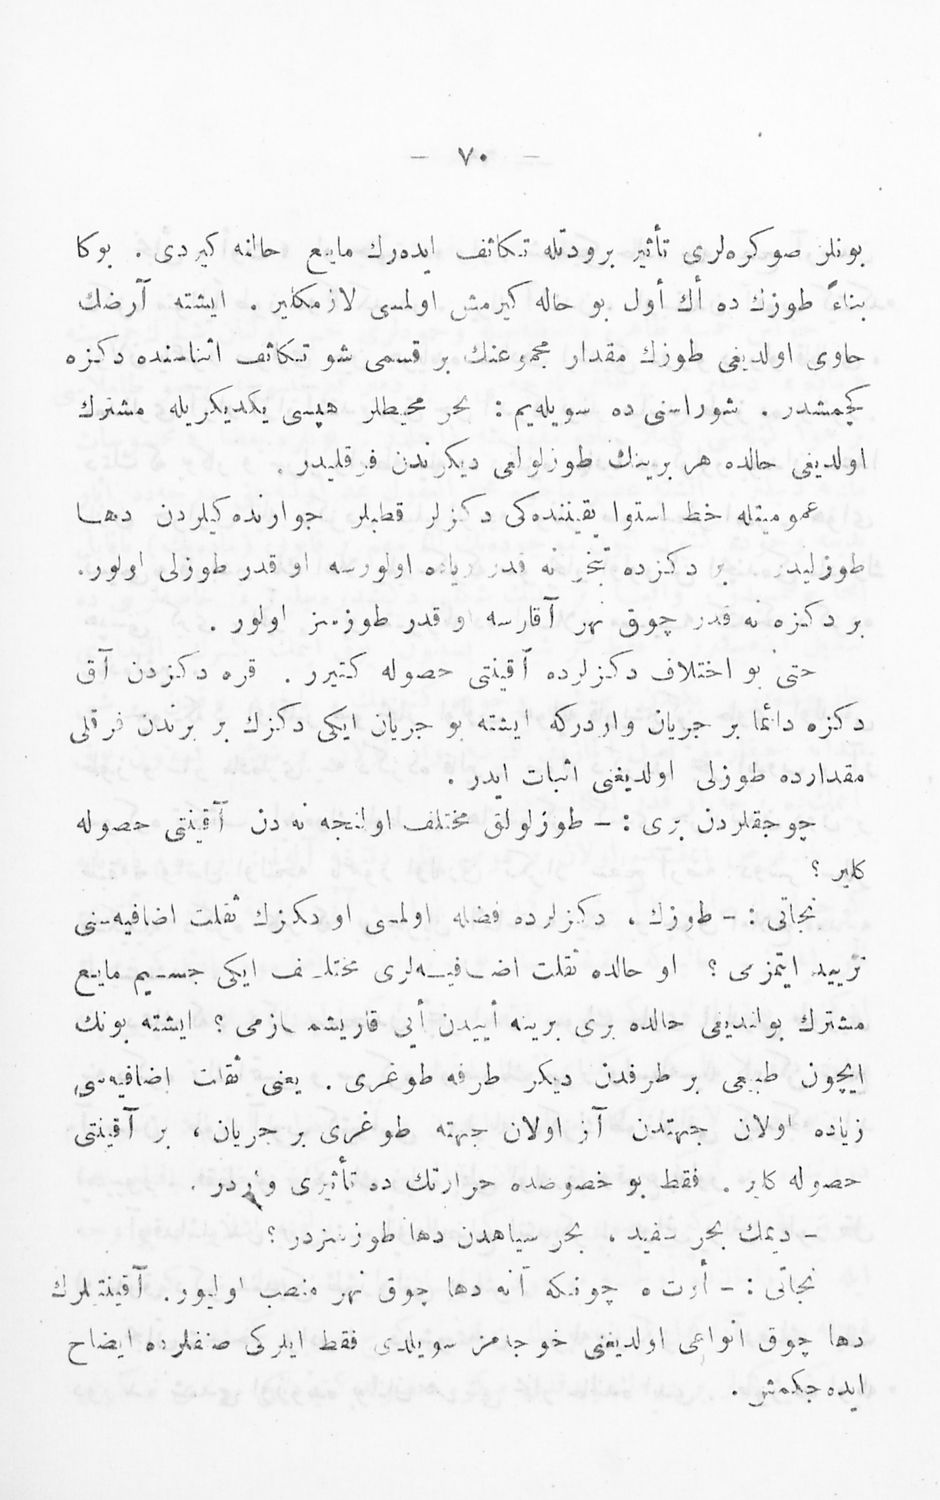 — ٧٠ —
بونلر صوكره‌لرى تأثير برودتله تكاثف ايده‌رك مايع حالنه كيردى . بوكا
بناءً طوزك ده أك أول بو حاله كيرمش اولمسى لازمكلير . ايشته آرضك
حاوى اولديغى طوزك مقدار مجموعنك بر قسمى شو تكاثف اثناسنده دكزه
كچمشدر . شوراسنى ده سويله‌يم : بحر محيطلر هپسى يكديكريله مشترك
اولديغى حالده هر برينك طوزلولغى ديكرندن فرقليدر .
عموميتله خط استوا يقيننده‌كى دكزلر قطبلر جوارنده‌كيلردن دها
طوزليدر . بر دكزده تبخر نه قدر زياده اولورسه او قدر طوزلى اولور.
بر دكزه نه قدر چوق نهر آقارسه او قدر طوزسز اولور .
حتى بو اختلاف دكزلرده آقينتى حصوله كتيرر . قره دكزدن آق
دكزه دائما بر جريان واردركه ايشته بو جريان ايكى دكزك بر برندن فرقلى
مقدارده طوزلى اولديغنى اثبات ايدر .
چوجقلردن برى : — طوزلولق مختلف اولنجه نه دن آقينتى حصوله
كلير ؟
نجاتى : — طوزك ، دكزلرده فضله اولمسى او دكزك ثقلت اضافيه‌سنى
تزييد ايتمزمى ؟ او حالده ثقلت اضافيه‌لرى مختلف ايكى جسيم مايع
مشترك بولنديغى حالده برى برينه أييدن أيى قاريشمازمى ؟ ايشته بونك
ايچون طبيعى بر طرفدن ديكر طرفه طوغرى . يعنى ثقلت اضافيه‌سى
زياده اولان جهتدن آز اولان جهته طوغرى بر جريان ، بر آقينتى
حصوله كلير . فقط بو خصوصده حرارتك ده تأثيرى واردر .
— ديمك بحر سفيد ، بحر سياهدن دها طوزسزدر ؟
نجاتى : — أوت چونكه آنه دها چوق نهر منصب اوليور. آقينتيلرك
دها چوق انواعى اولديغنى خوجه‌مز سويلدى فقط ايلركى صنفلرده ايضاح
ايده‌جكمش .